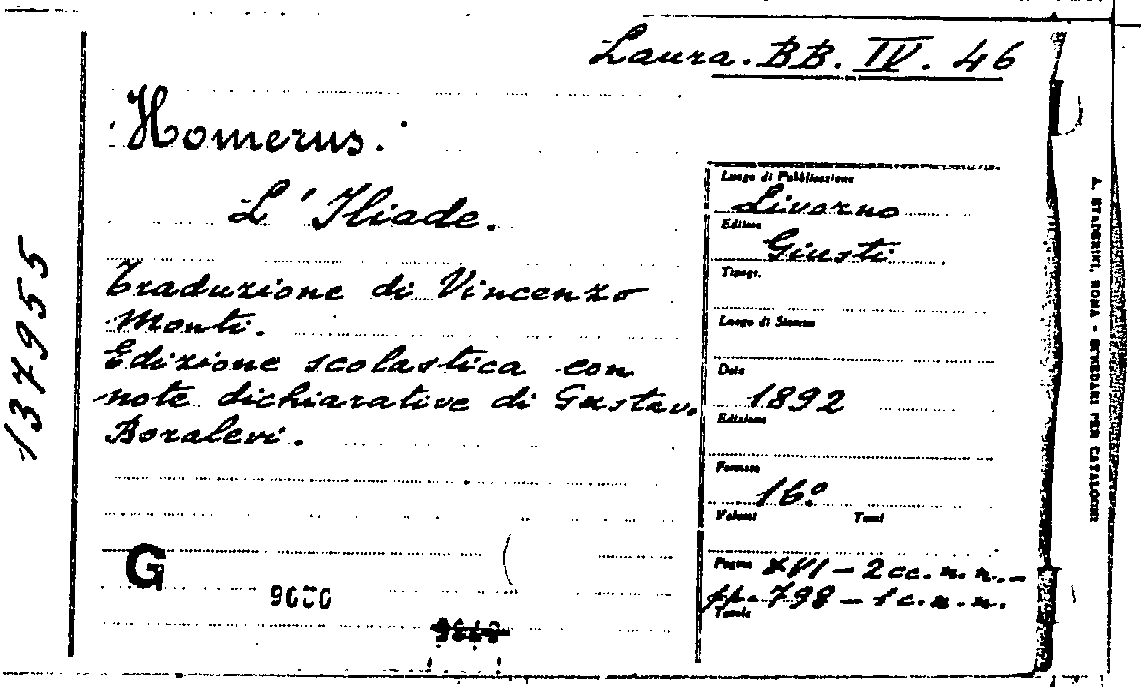 Laura. BB. IV. 46
Homerus.
L'Iliade.
Traduzione di Vincenzo
Monti.
Edizione scolastica con
note dichiarative di Gustavo
Boralevi.
137955
G
Luogo di Pubblicazione
Livorno
Editore
Giusti
Tipogr.
Luogo di Stampa
Data
1892
Edizione
Formato
16º
Volumi Tomi
Pagine XVI - 2 cc. n. n. -
pp. 798 - 1 c. n. n.
Tavole
A. STADERINI, ROMA - SCHEDARI PER CATALOGHI